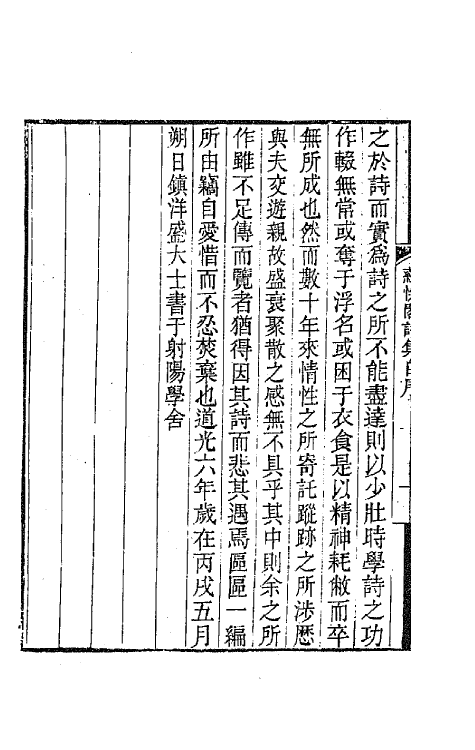 之於詩而實爲詩之所不能盡達則以少壯時學詩之功
作輟無常或奪于浮名或困于衣食是以精神耗敝而卒
無所成也然而數十年來情性之所寄託蹤跡之所涉歷
與夫交遊親故盛衰聚散之感無不具乎其中則余之所
作雖不足傳而覽者猶得因其詩而悲其遇焉區區一編
所由竊自愛惜而不忍焚棄也道光六年歲在丙戌五月
朔日鎮洋盛大士書于射陽學舍